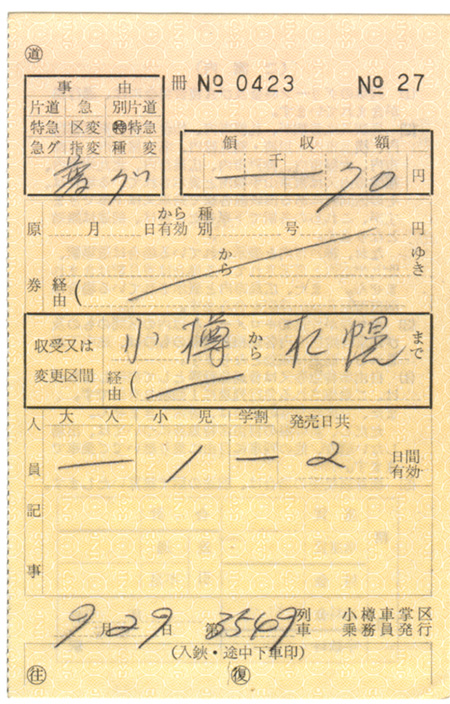 ㊂道
事 由
冊 No 0423 No 27
片道 急 別片道
特急 区変 ㊕特急
急グ 指変 種 変
領 収 額
千
70 円
原 月 から 日有効 種別 号 円
から ゆき
券 経由 (
収受又は変更区間 小樽 から 札幌 まで
経由 (
人員 大人 小児 学割 発売日共
— 1 — 2 日間有効
記事
9月29日 第3549列車 小樽車掌区乗務員発行
(入鋏・途中下車印)
往 復